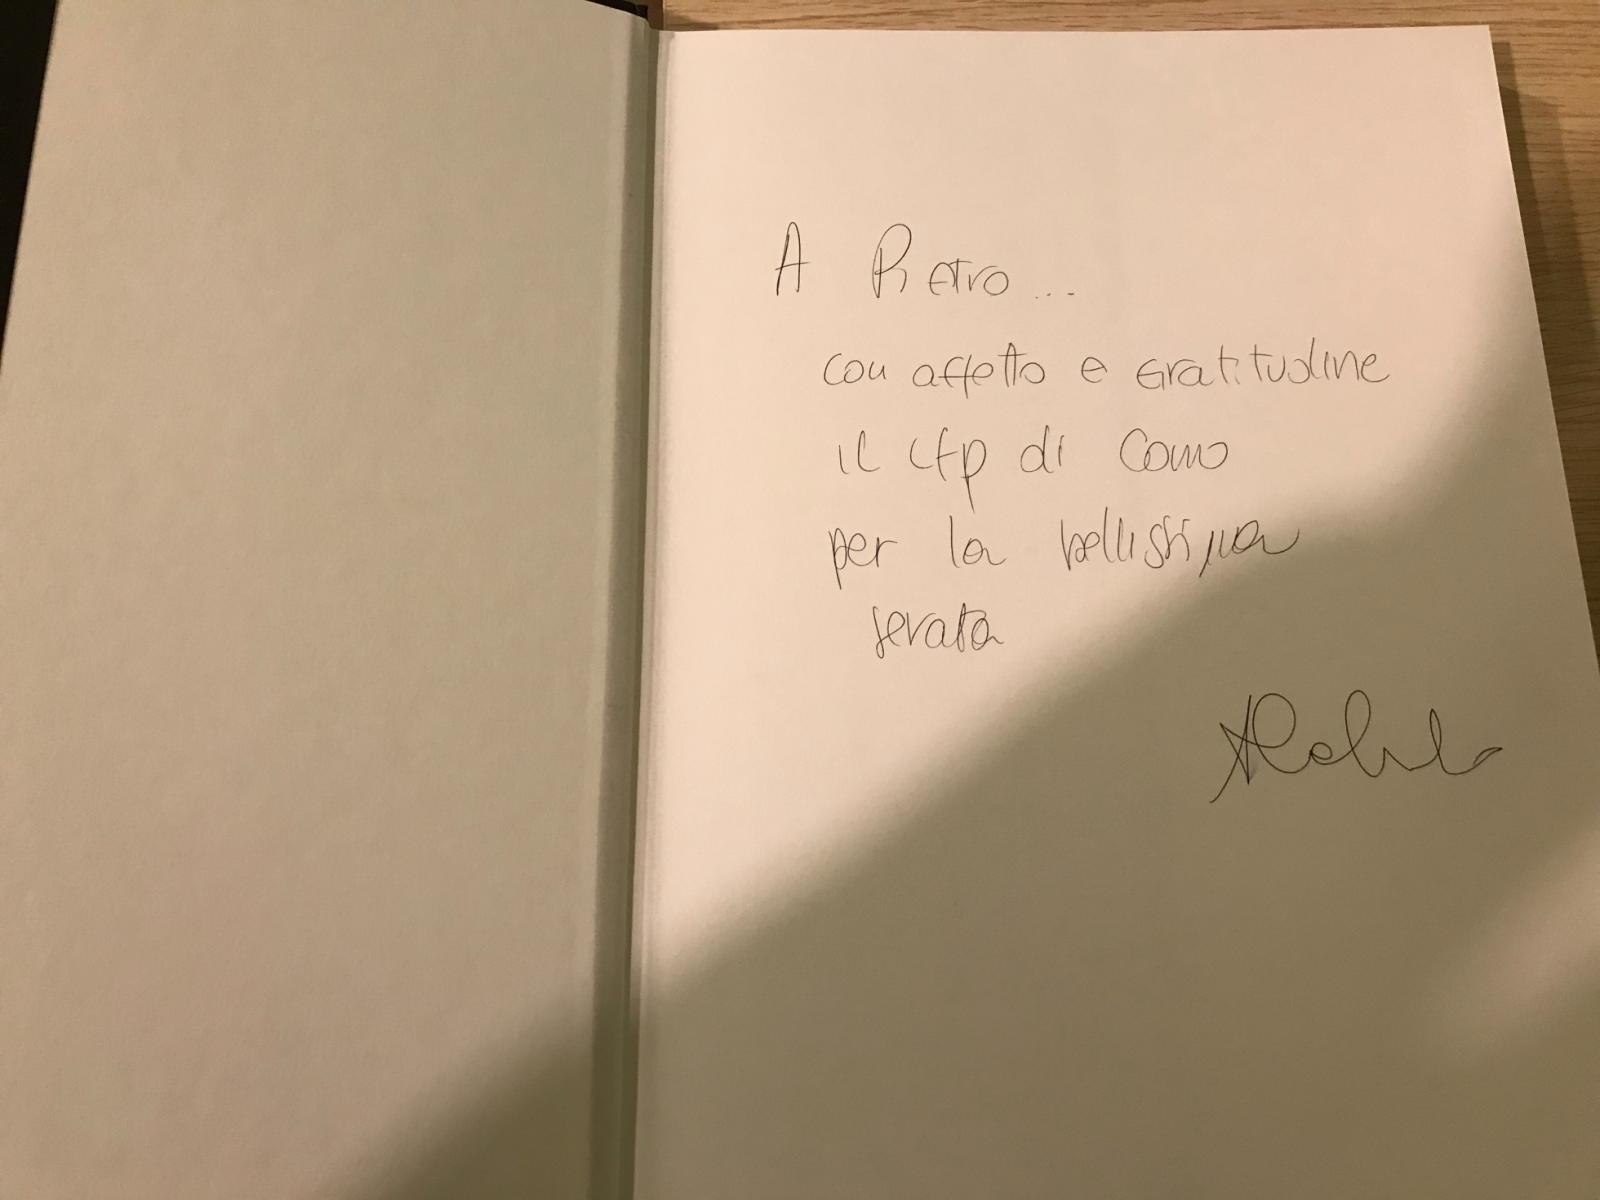 A Pietro...
con affetto e Gratitudine
il cfp di Como
per la bellissima
serata